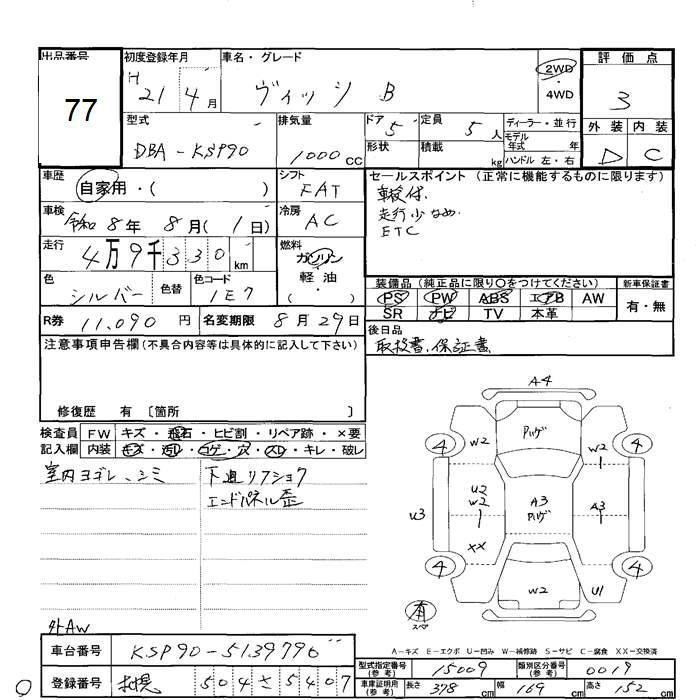 出品番号 初度登録年月 車名・グレード 評価点
77
H 21年 4月 ヴィッツ B 2WD・4WD 3
外装 内装
D C
型式 排気量 ドア 定員 ディーラー・並行
DBA-KSP90 1000cc 5 5人
形状 積載 kg モデル年式 年
ハンドル 左・右
車歴 自家用・( ) シフト FAT
セールスポイント (正常に機能するものに限ります)
車検付
走行少なめ
ETC
車検 令和8年 8月( 1日) 冷房 AC
走行 4万9千330km 燃料 ガソリン・軽油・( )
色 シルバー 色替 色コード 1E7
装備品(純正品に限り○をつけてください) 新車保証書
PS PW ABS エアB AW 有・無
SR ナビ TV 本革
R券 11,090円 名変期限 8月29日
後日品
取扱書、保証書
注意事項申告欄(不具合内容等は具体的に記入して下さい)
修復歴 有 〔箇所 〕
検査員 FW キズ・飛石・ヒビ割・リペア跡・×要
記入欄 内装 キズ・汚レ・コゲ・穴・スレ・キレ・破レ
室内ヨゴレ、シミ
下廻リフショク
エンドパネル歪
外AW
A4
4 W2 Pハゲ W2 4
U3 U2 W2 A3 Pハゲ A3
XX
4 W2 U1 4
有
スペア
A-キズ E-エクボ U-凹み W-補修跡 S-サビ C-腐食 XX-交換済
車台番号 KSP90-5139796
型式指定番号(参考) 15009 類別区分番号(参考) 0019
登録番号 札幌 504 さ 5407
車庫証明用(参考) 長さ 378cm 幅 169cm 高さ 152cm